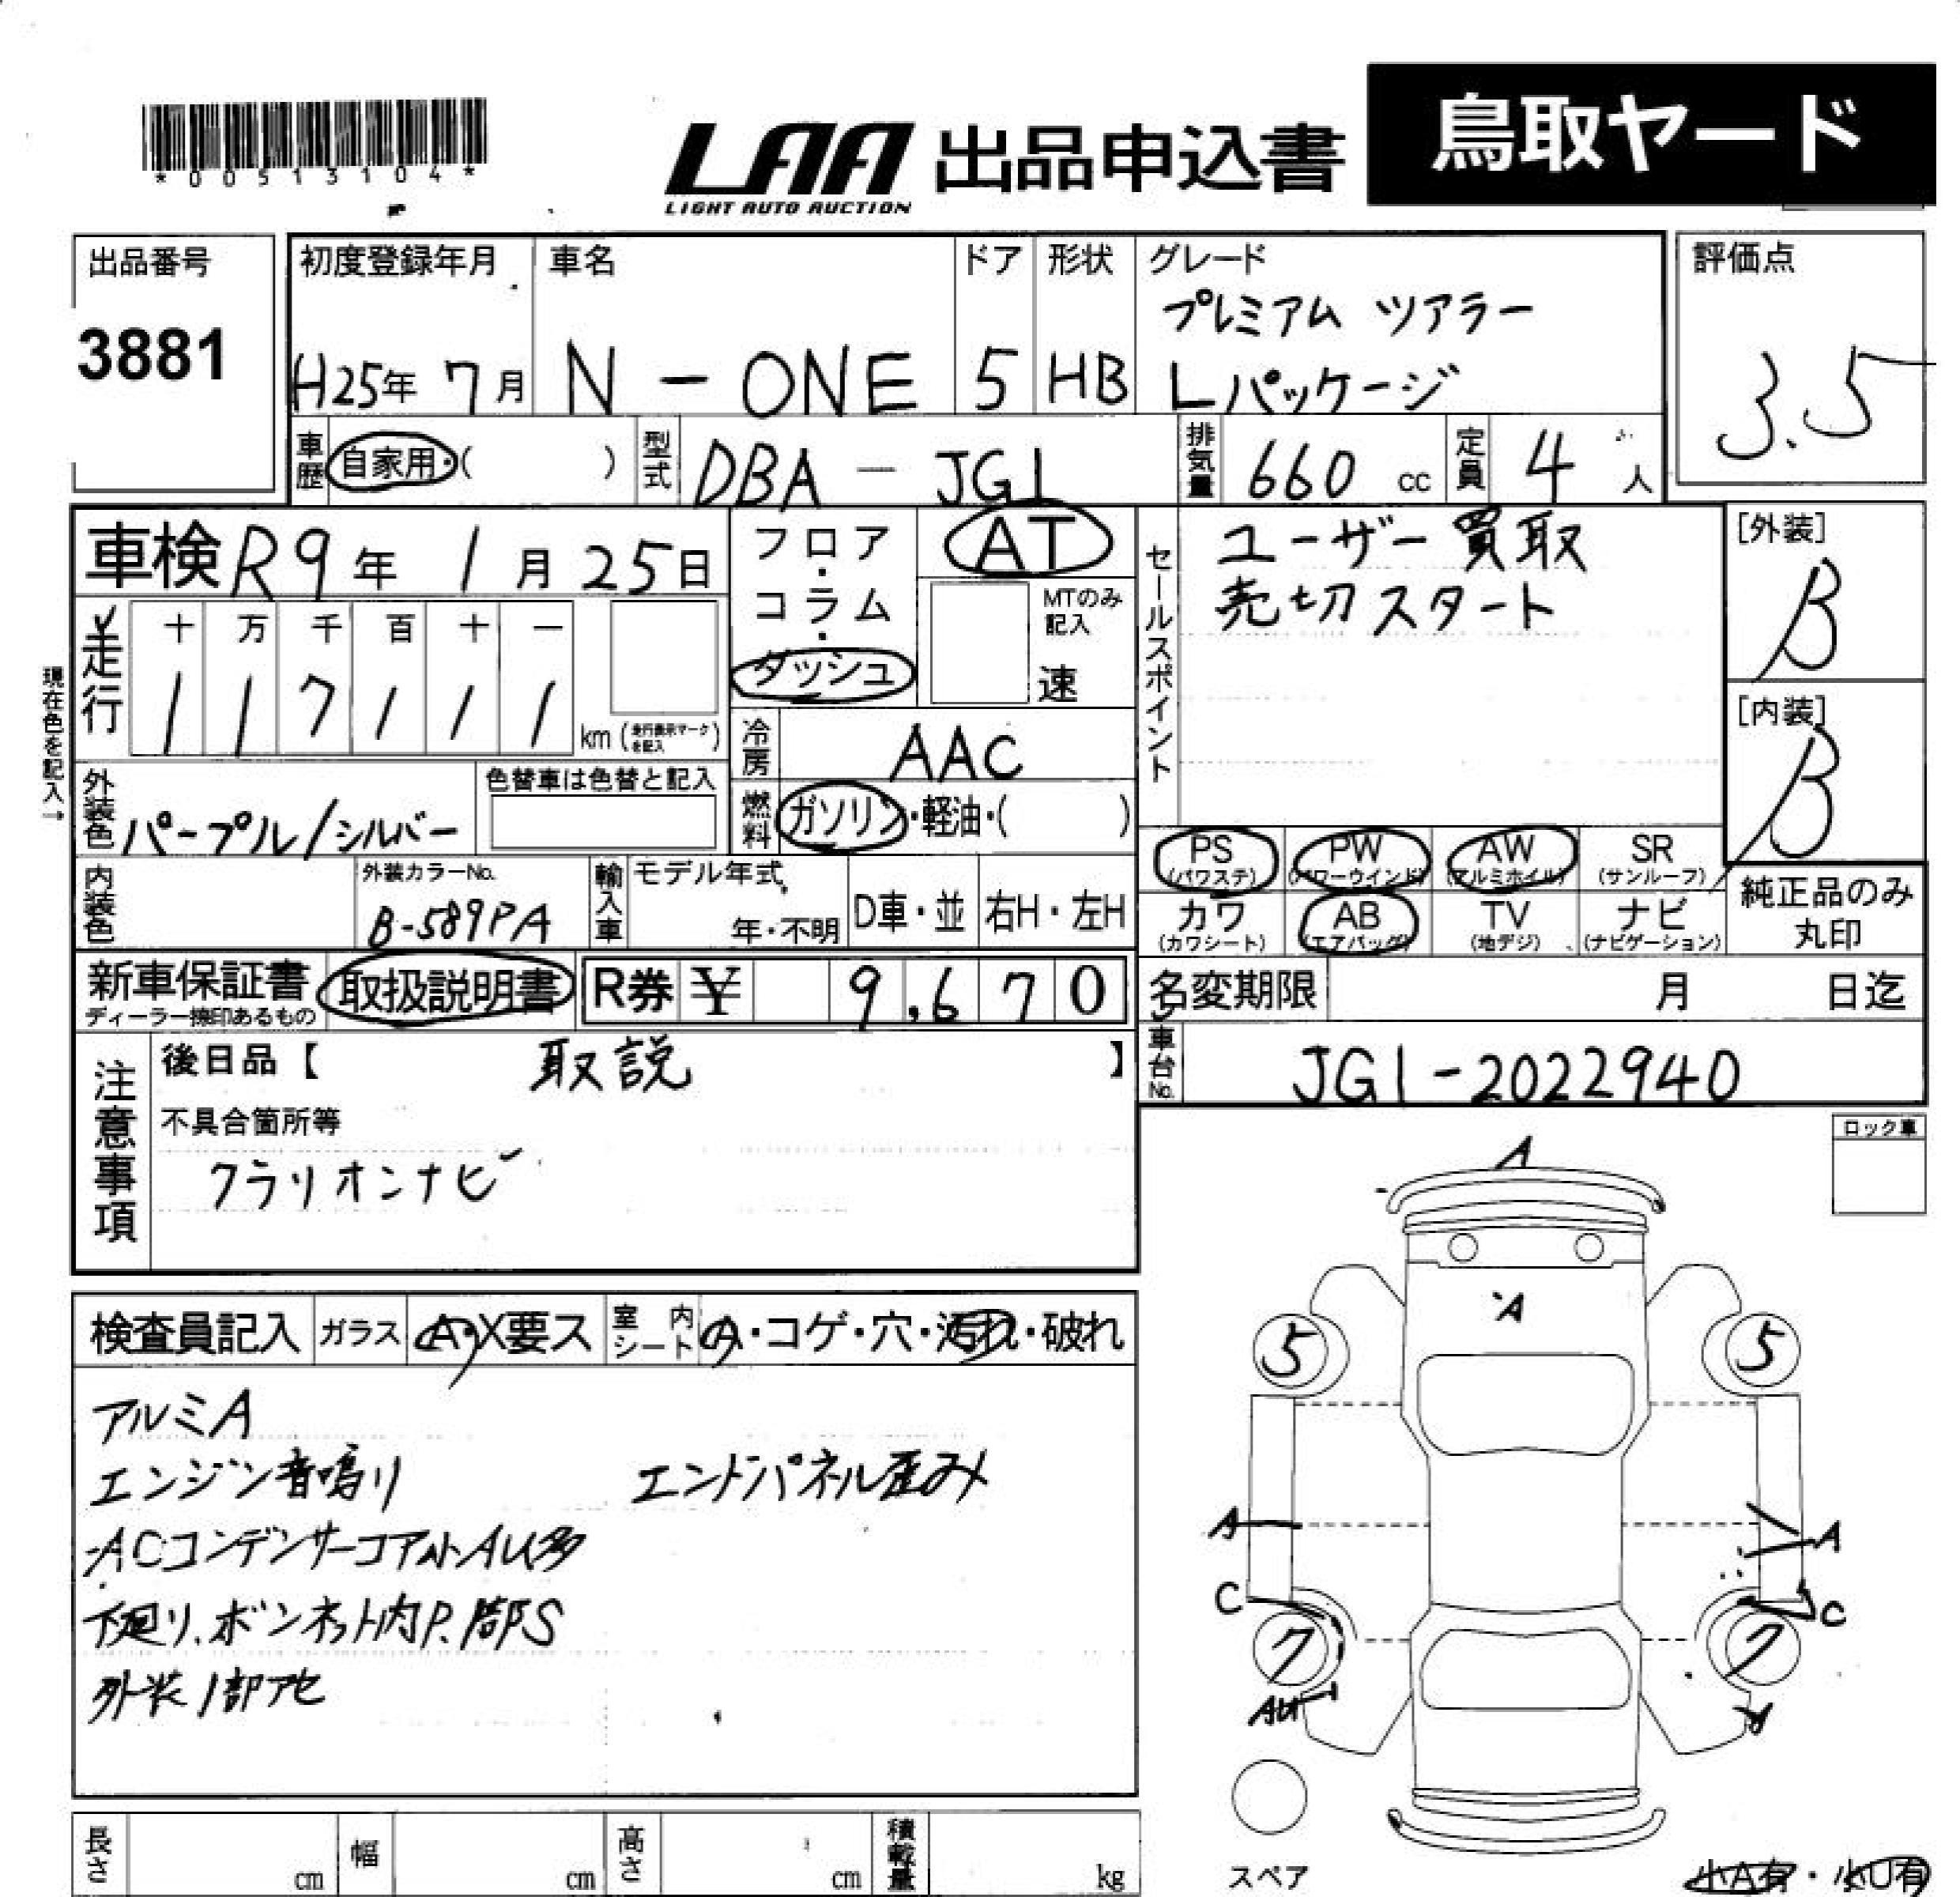 *00513104*
LAA 出品申込書 鳥取ヤード
LIGHT AUTO AUCTION
出品番号 初度登録年月 車名 ドア 形状 グレード 評価点
3881 H25年 7月 N-ONE 5 HB プレミアム ツアラー
Lパッケージ 3.5
車歴 自家用・( ) 型式 DBA-JG1 排気量 660 cc 定員 4 人
車検 R9年 1月 25日
フロア・コラム・ダッシュ AT
MTのみ記入 速
セールスポイント ユーザー買取
売切スタート
[外装] B
現在色を記入→
走行 十 万 千 百 十 一
1 1 7 1 1 1 km (走行表示マークを記入)
[内装] B
冷房 AAC
外装色 パープル/シルバー 色替車は色替と記入
燃料 ガソリン・軽油・( )
PS (パワステ) PW (パワーウインド) AW (アルミホイル) SR (サンルーフ)
カワ (カワシート) AB (エアバッグ) TV (地デジ) ナビ (ナビゲーション)
純正品のみ丸印
内装色 外装カラーNo. B-589PA 輸入車 モデル年式 年・不明 D車・並 右H・左H
新車保証書 取扱説明書 R券 ¥ 9,670 名変期限 月 日迄
ディーラー捺印あるもの
注意事項 後日品【 取説 】
車台No. JG1-2022940
不具合箇所等
クラリオンナビ
ロック車
検査員記入 ガラス A・X要ス 室内シート A・コゲ・穴・汚れ・破れ
アルミA
エンジン音鳴り エンドパネル歪み
ACコンデンサーコアサポートAU多
下廻り、ボンネット内P.部S
外装1部アセ
A
A
5 5
A A
C C
7 7
AU A
スペア
小A有・小U有
長さ cm 幅 cm 高さ cm 積載量 kg